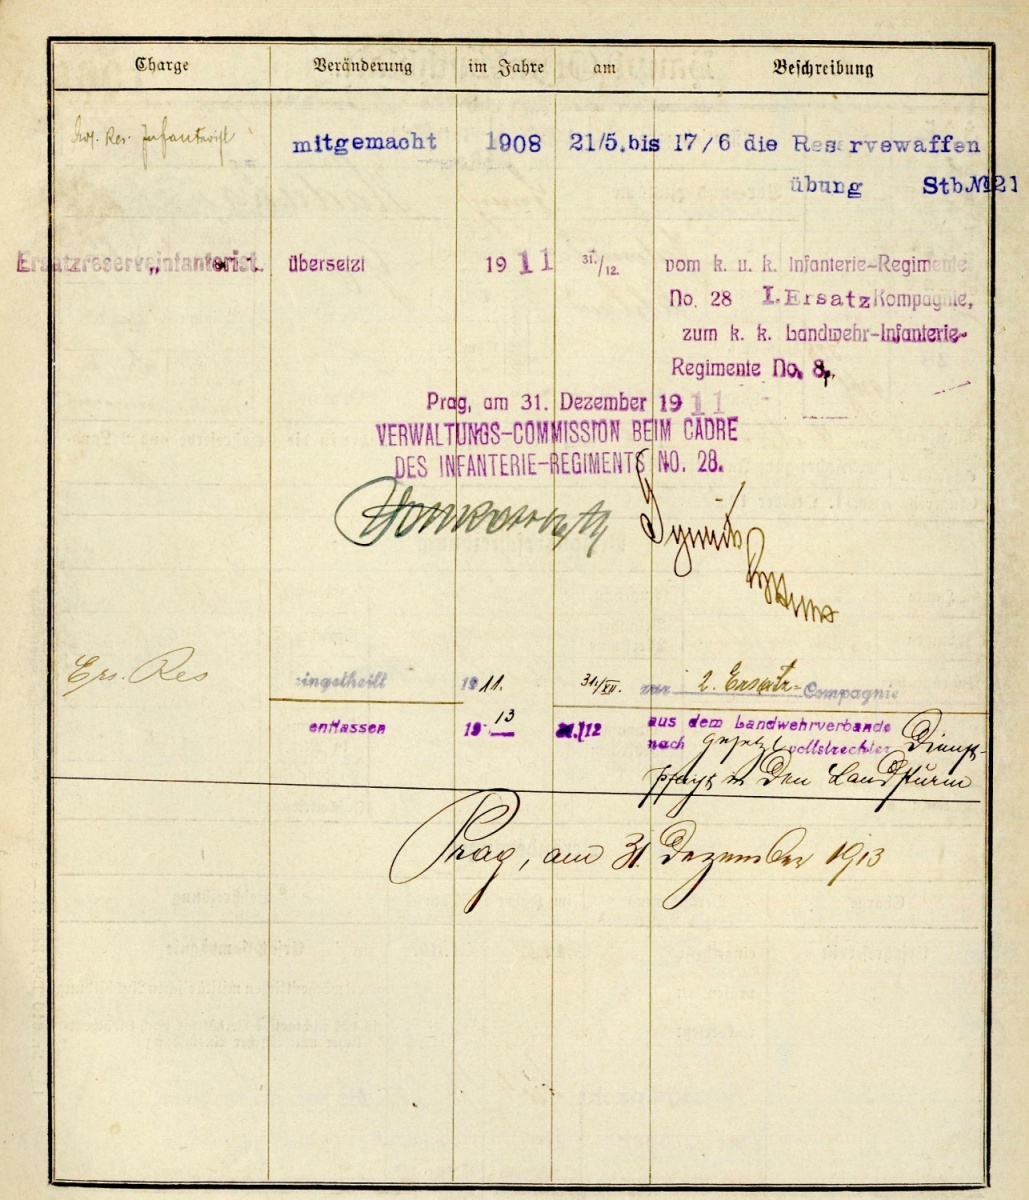 Charge Veränderung im Jahre am Beschreibung
Ers. Res. Infanterist mitgemacht 1908 21/5. bis 17/6 die Reservewaffen
übung Stb.№21
Ersatzreserve„infanterist. übersetzt 1911 31./12. vom k. u. k. Infanterie-Regimente
No. 28 I. Ersatz Kompagnie,
zum k. k. Landwehr-Infanterie-
Regimente No. 8,
Prag, am 31. Dezember 1911
VERWALTUNGS-COMMISSION BEIM CADRE
DES INFANTERIE-REGIMENTS NO. 28.
Ers. Res eingetheilt 1911. 31./XII. zur 2. Ersatz- Compagnie
entlassen 1913 31./12 aus dem Landwehrverbande
nach gesetzl vollstreckter Dienst-
pflicht in den Landsturm
Prag, am 31. Dezember 1913